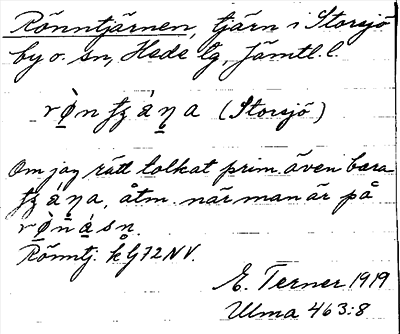 Rönntjärnen, tjärn i Storsjö
by o. sn, Hede tg, Jämtl. l.
(Storsjö)
Om jag rätt tolkat prim. även bara
åtm. när man är på
Rönntj. kg 72 NV.
E. Terner 1919
Ulma 463:8